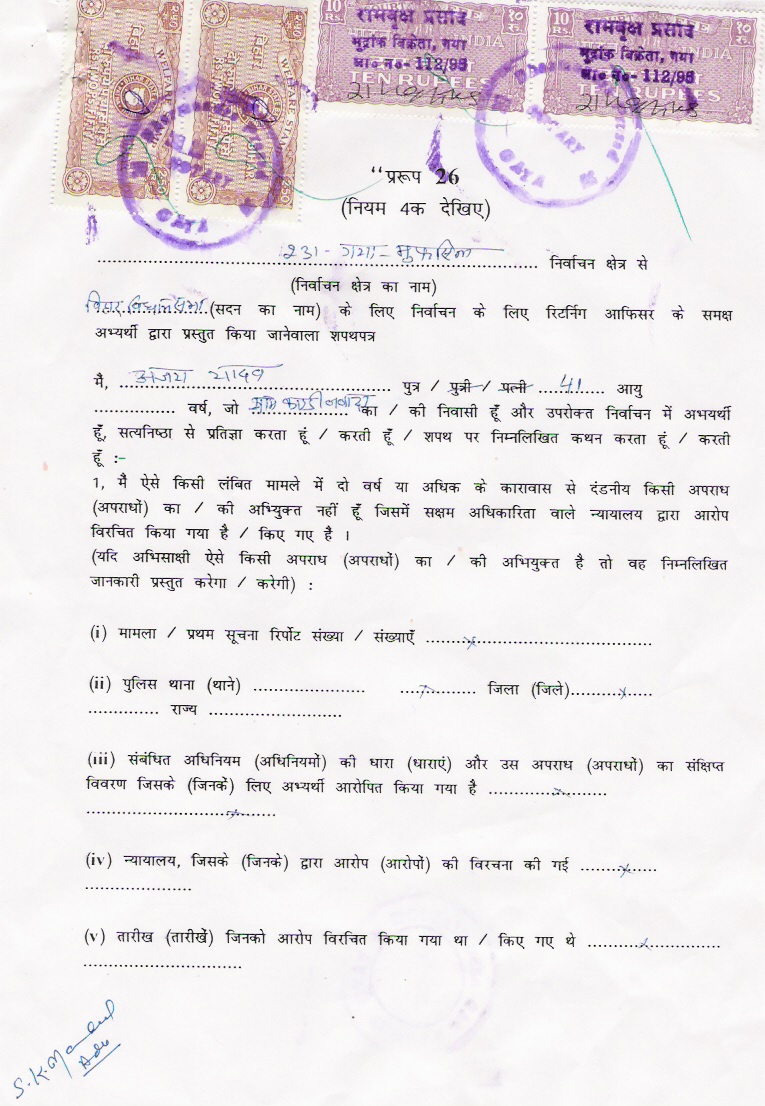 10 Rs. १० रु.
रामवृक्ष प्रसाद
मुद्रांक विक्रेता, गया
ला० न०- 112/95
INDIA
TEN RUPEES
10 Rs. १० रु.
रामवृक्ष प्रसाद
मुद्रांक विक्रेता, गया
ला० न०- 112/95
TEN RUPEES
NOTARY
GAYA
NOTARY
GAYA
“प्ररूप 26
(नियम 4क देखिए)
231- गया- मुफस्सिल निर्वाचन क्षेत्र से
(निर्वाचन क्षेत्र का नाम)
बिहार विधान सभा (सदन का नाम) के लिए निर्वाचन के लिए रिटर्निग आफिसर के समक्ष
अभ्यर्थी द्वारा प्रस्तुत किया जानेवाला शपथपत्र
मैं, अजय यादव पुत्र / पुत्री / पत्नी 41 आयु
वर्ष, जो ग्राम का / की निवासी हूँ और उपरोक्त निर्वाचन में अभयर्थी
हूँ, सत्यनिष्ठा से प्रतिज्ञा करता हूं / करती हूँ / शपथ पर निम्नलिखित कथन करता हूं / करती
हूँ :-
1, मै ऐसे किसी लंबित मामले में दो वर्ष या अधिक के कारावास से दंडनीय किसी अपराध
(अपराधों) का / की अभ्युिक्त नहीं हूँ जिसमें सक्षम अधिकारिता वाले न्यायालय द्वारा आरोप
विरचित किया गया है / किए गए है ।
(यदि अभिसाक्षी ऐसे किसी अपराध (अपराधों) का / की अभियुक्त है तो वह निम्नलिखित
जानकारी प्रस्तुत करेगा / करेगी) :
(i) मामला / प्रथम सूचना रिर्पोट संख्या / संख्याएँ ........x........
(ii) पुलिस थाना (थाने) ........x........ जिला (जिले)........x........
............. राज्य ........................
(iii) संबंधित अधिनियम (अधिनियमों) की धारा (धाराएं) और उस अपराध (अपराधों) का संक्षिप्त
विवरण जिसके (जिनकें) लिए अभ्यर्थी आरोपित किया गया है ........x........
........x........
(iv) न्यायालय, जिसके (जिनके) द्वारा आरोप (आरोपों) की विरचना की गई ........x........
....................
(v) तारीख (तारीखें) जिनको आरोप विरचित किया गया था / किए गए थे ........x........
..............................
S.K. Mandal
Adv